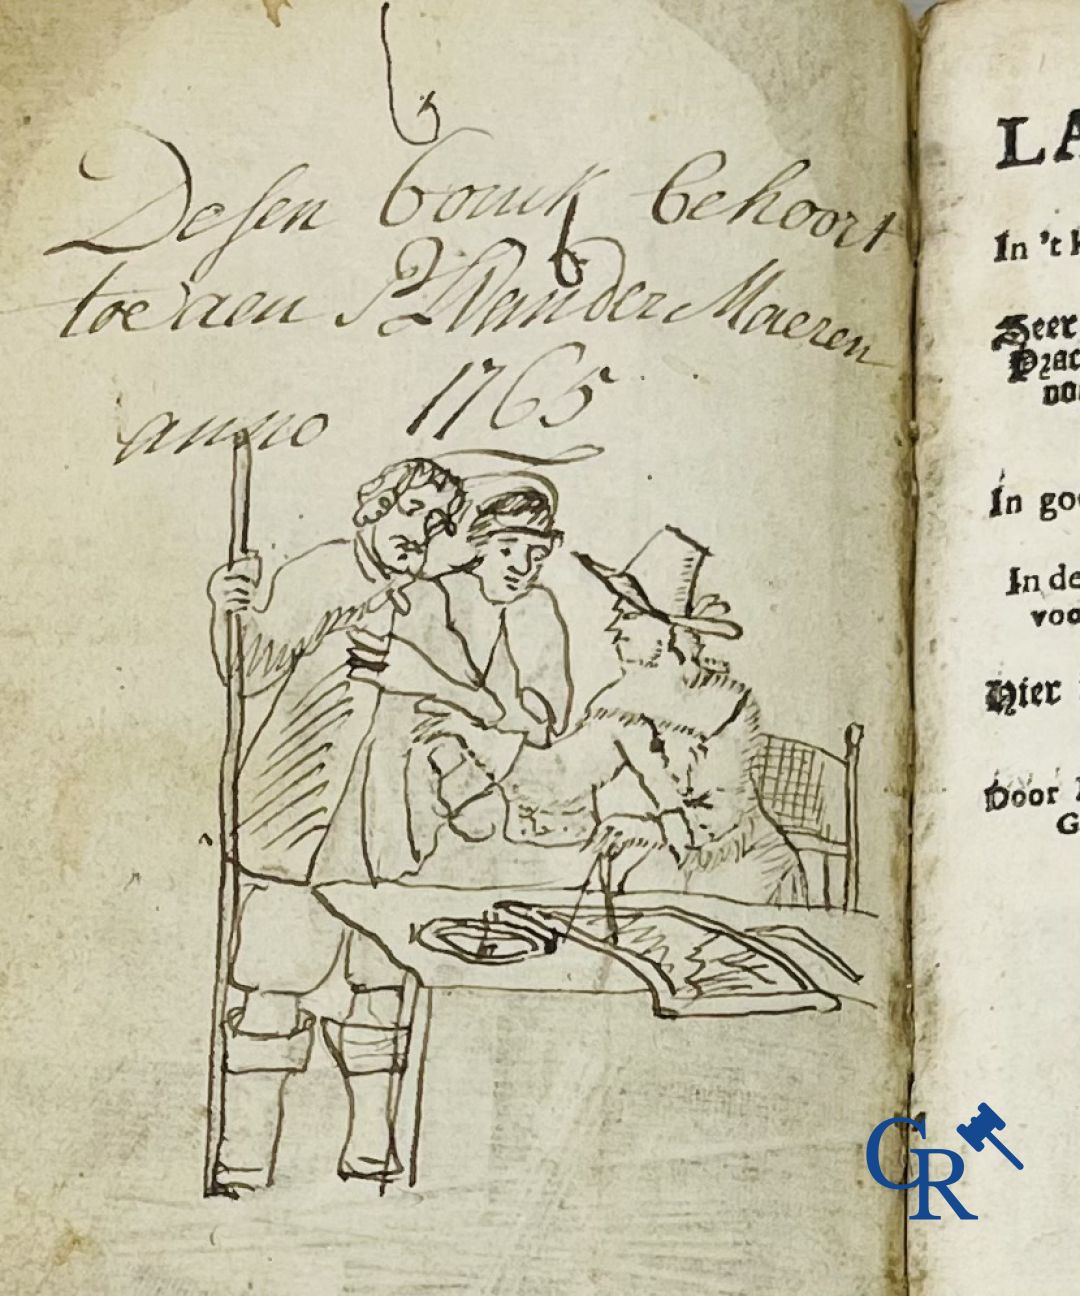 Desen bouck behoort
toe aen P Vander Maeren
anno 1765
LA
In 't k
Seer
Prac
In goe
In de
voo
Hier
Door
G
CR